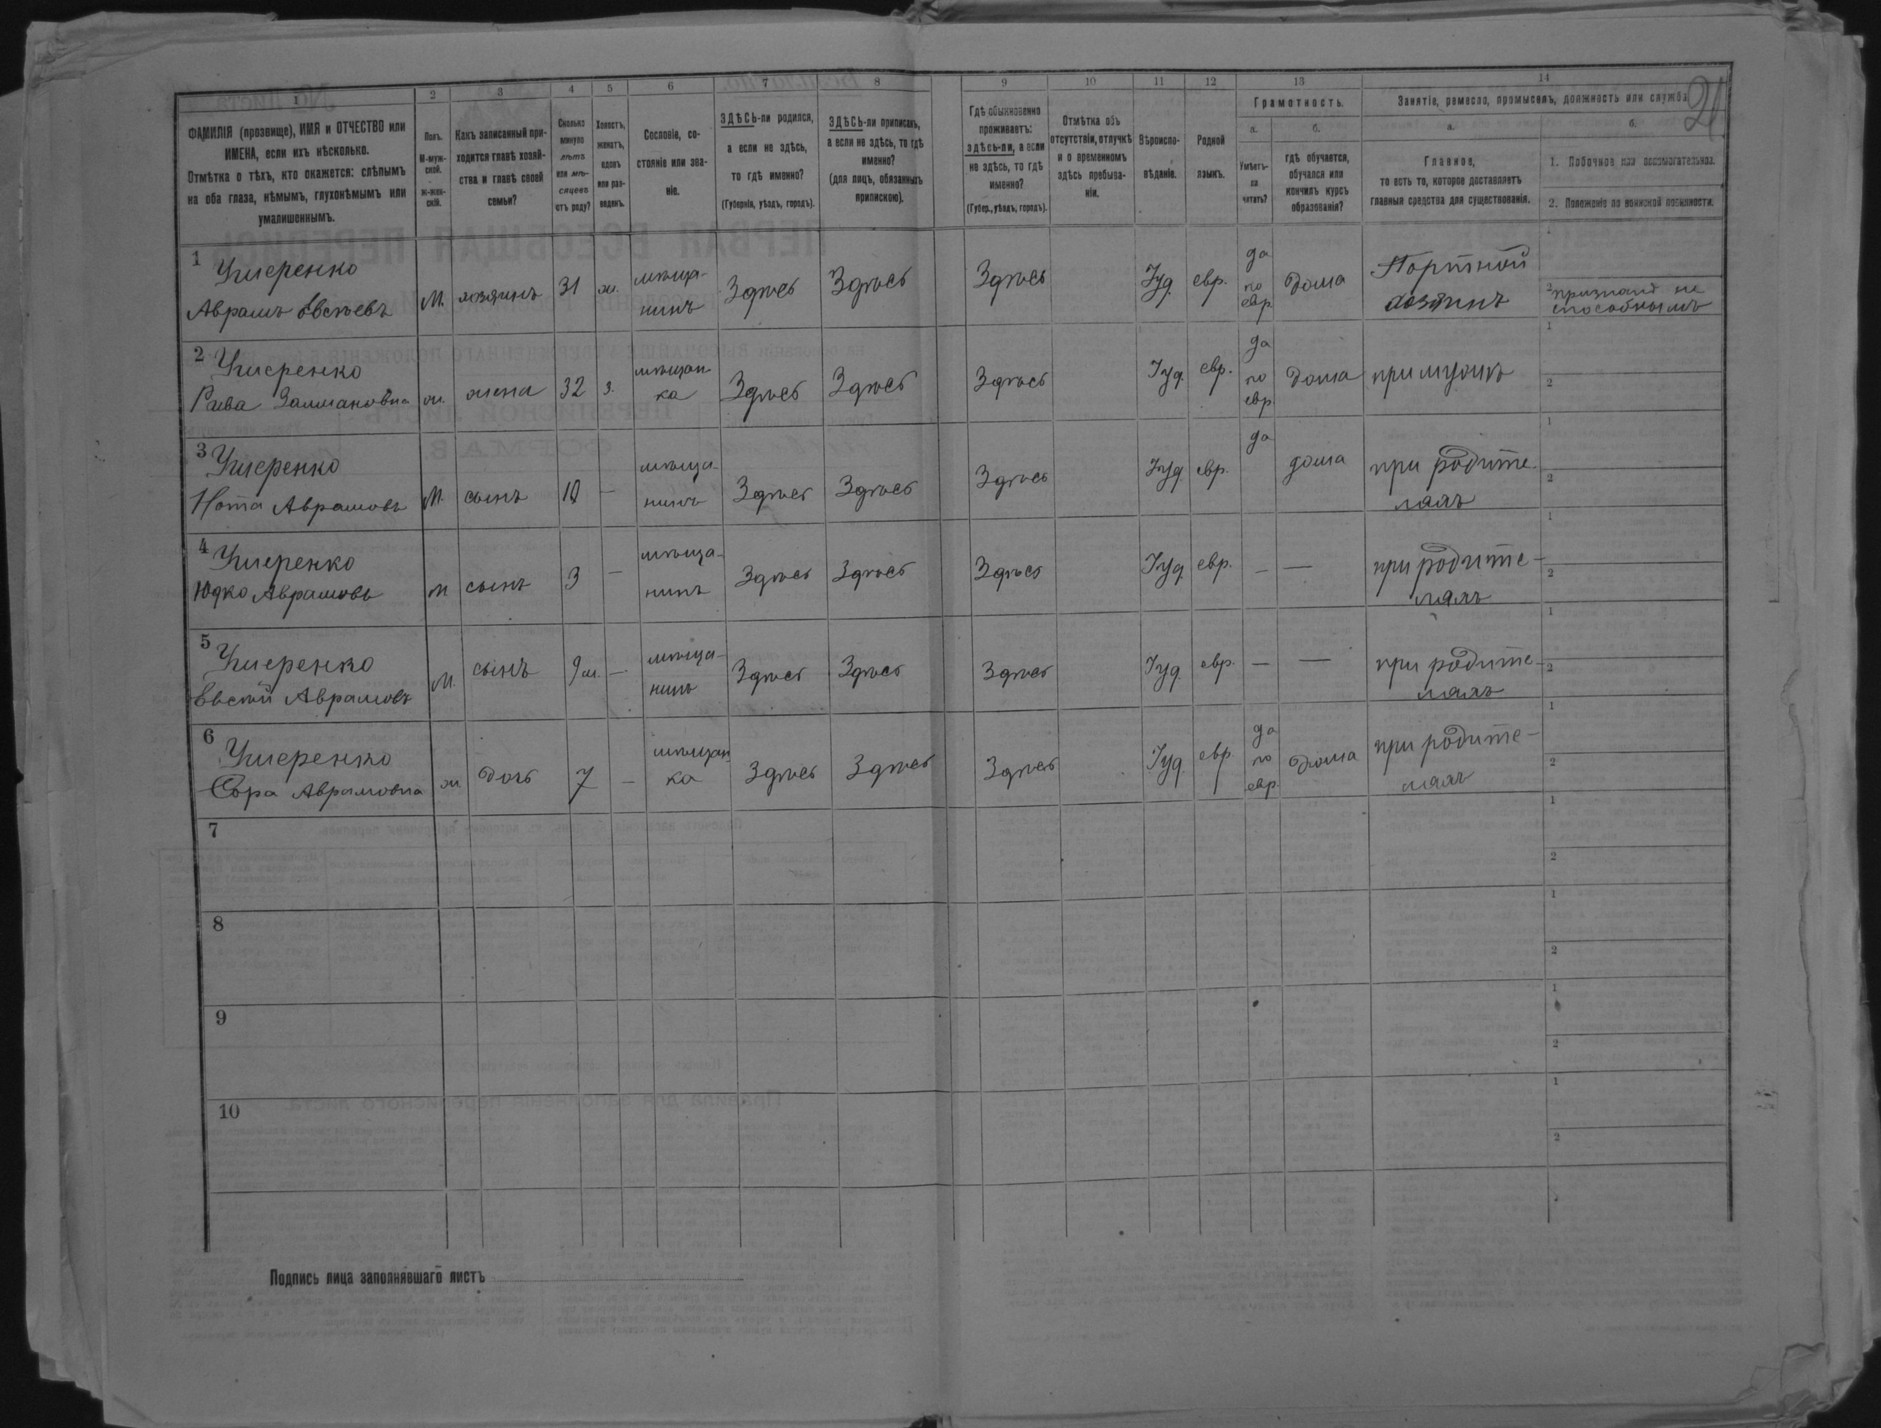 21
1 2 3 4 5 6 7 8 9 10 11 12 13 14
ФАМИЛІЯ (прозвище), ИМЯ и ОТЧЕСТВО или
ИМЕНА, если ихъ нѣсколько.
Отмѣтка о тѣхъ, кто окажется: слѣпымъ
на оба глаза, нѣмымъ, глухонѣмымъ или
умалишеннымъ.
Полъ.
М-муж-
ской.
ж-жен-
скій.
Какъ записанный при-
ходится главѣ хозяй-
ства и главѣ своей
семьи?
Сколько
минуло
лѣтъ
или мѣ-
сяцевъ
отъ роду?
Холостъ,
женатъ,
вдовъ
или раз-
веденъ.
Сословіе, со-
стояніе или зва-
ніе.
ЗДѢСЬ-ли родился,
а если не здѣсь,
то гдѣ именно?
(Губернія, уѣздъ, городъ).
ЗДѢСЬ-ли приписанъ,
а если не здѣсь, то гдѣ
именно?
(для лицъ, обязанныхъ
припискою).
Гдѣ обыкновенно
проживаетъ:
здѣсь-ли, а если
не здѣсь, то гдѣ
именно?
(Губер., уѣздъ, городъ).
Отмѣтка объ
отсутствіи, отлучкѣ
и о временномъ
здѣсь пребыва-
ніи.
Вѣроиспо-
вѣданіе.
Родной
языкъ.
Грамотность.
а.
Умѣетъ-
ли
читать?
б.
гдѣ обучается,
обучался или
кончилъ курсъ
образованія?
Занятіе, ремесло, промыселъ, должность или служба.
а.
Главное,
то есть то, которое доставляетъ
главныя средства для существованія.
б.
1. Побочное или вспомогательное.
2. Положеніе по воинской повинности.
1 Ушеренко
Аврамъ Евсѣевъ М. хозяинъ 31 ж. мѣща-
нинъ Здѣсь Здѣсь Здѣсь Іуд. евр. да
по
евр. дома Портной
хозяинъ 2 признанъ не
способнымъ
2 Ушеренко
Раева Залмановна ж. жена 32 з. мѣщан-
ка Здѣсь Здѣсь Здѣсь Іуд. евр. да
по
евр. дома при мужѣ
3 Ушеренко
Нота Аврамовъ М. сынъ 10 — мѣща-
нинъ Здѣсь Здѣсь Здѣсь Іуд. евр. да дома при родите-
ляхъ
4 Ушеренко
Юдко Аврамовъ м сынъ 3 — мѣща-
нинъ Здѣсь Здѣсь Здѣсь Іуд. евр. — — при родите-
ляхъ
5 Ушеренко
Евсей Аврамовъ М. сынъ 9 м. — мѣща-
нинъ Здѣсь Здѣсь Здѣсь Іуд. евр. — — при родите-
ляхъ
6 Ушеренко
Сора Аврамовна ж. дочь 7 — мѣщан-
ка Здѣсь Здѣсь Здѣсь Іуд. евр. да
по
евр. дома при родите-
ляхъ
7
8
9
10
Подпись лица заполнявшаго листъ